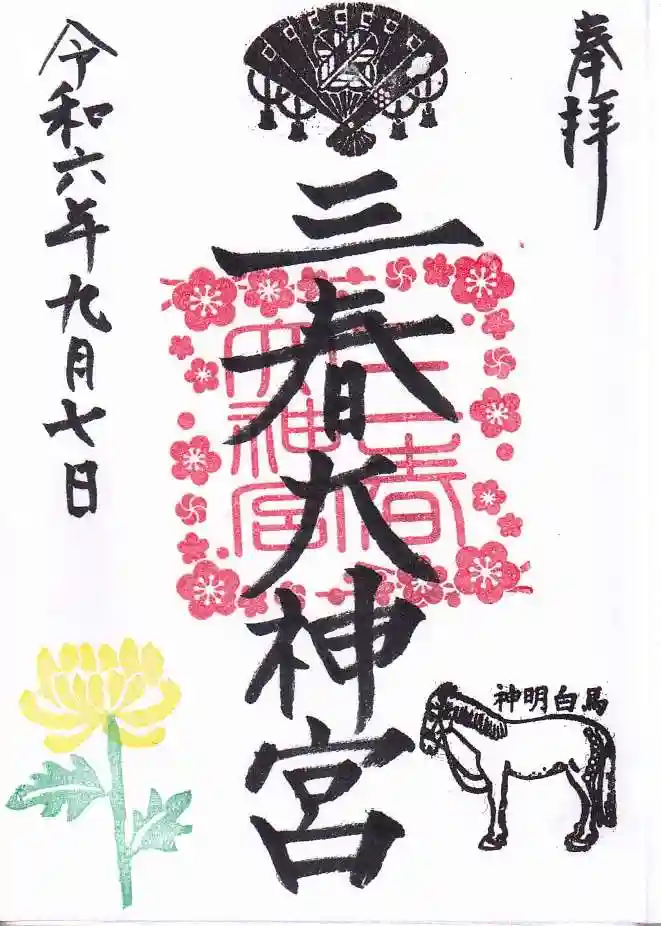 奉拝
三春大神宮
三春
大神宮
神明白馬
令和六年九月七日